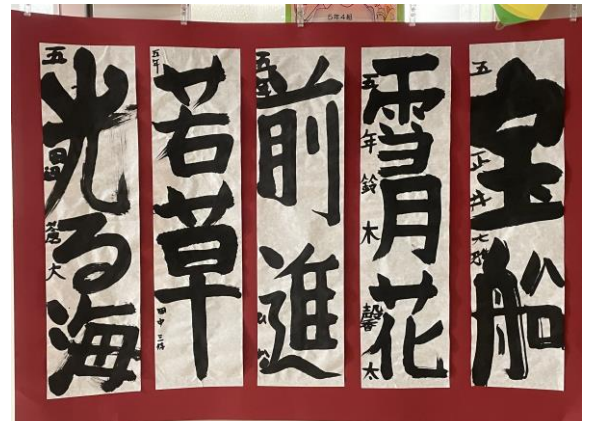 5年4組
宝船
五
雪月花
五年 鈴木馨太
前進
若草
五年
田中
光る海
五